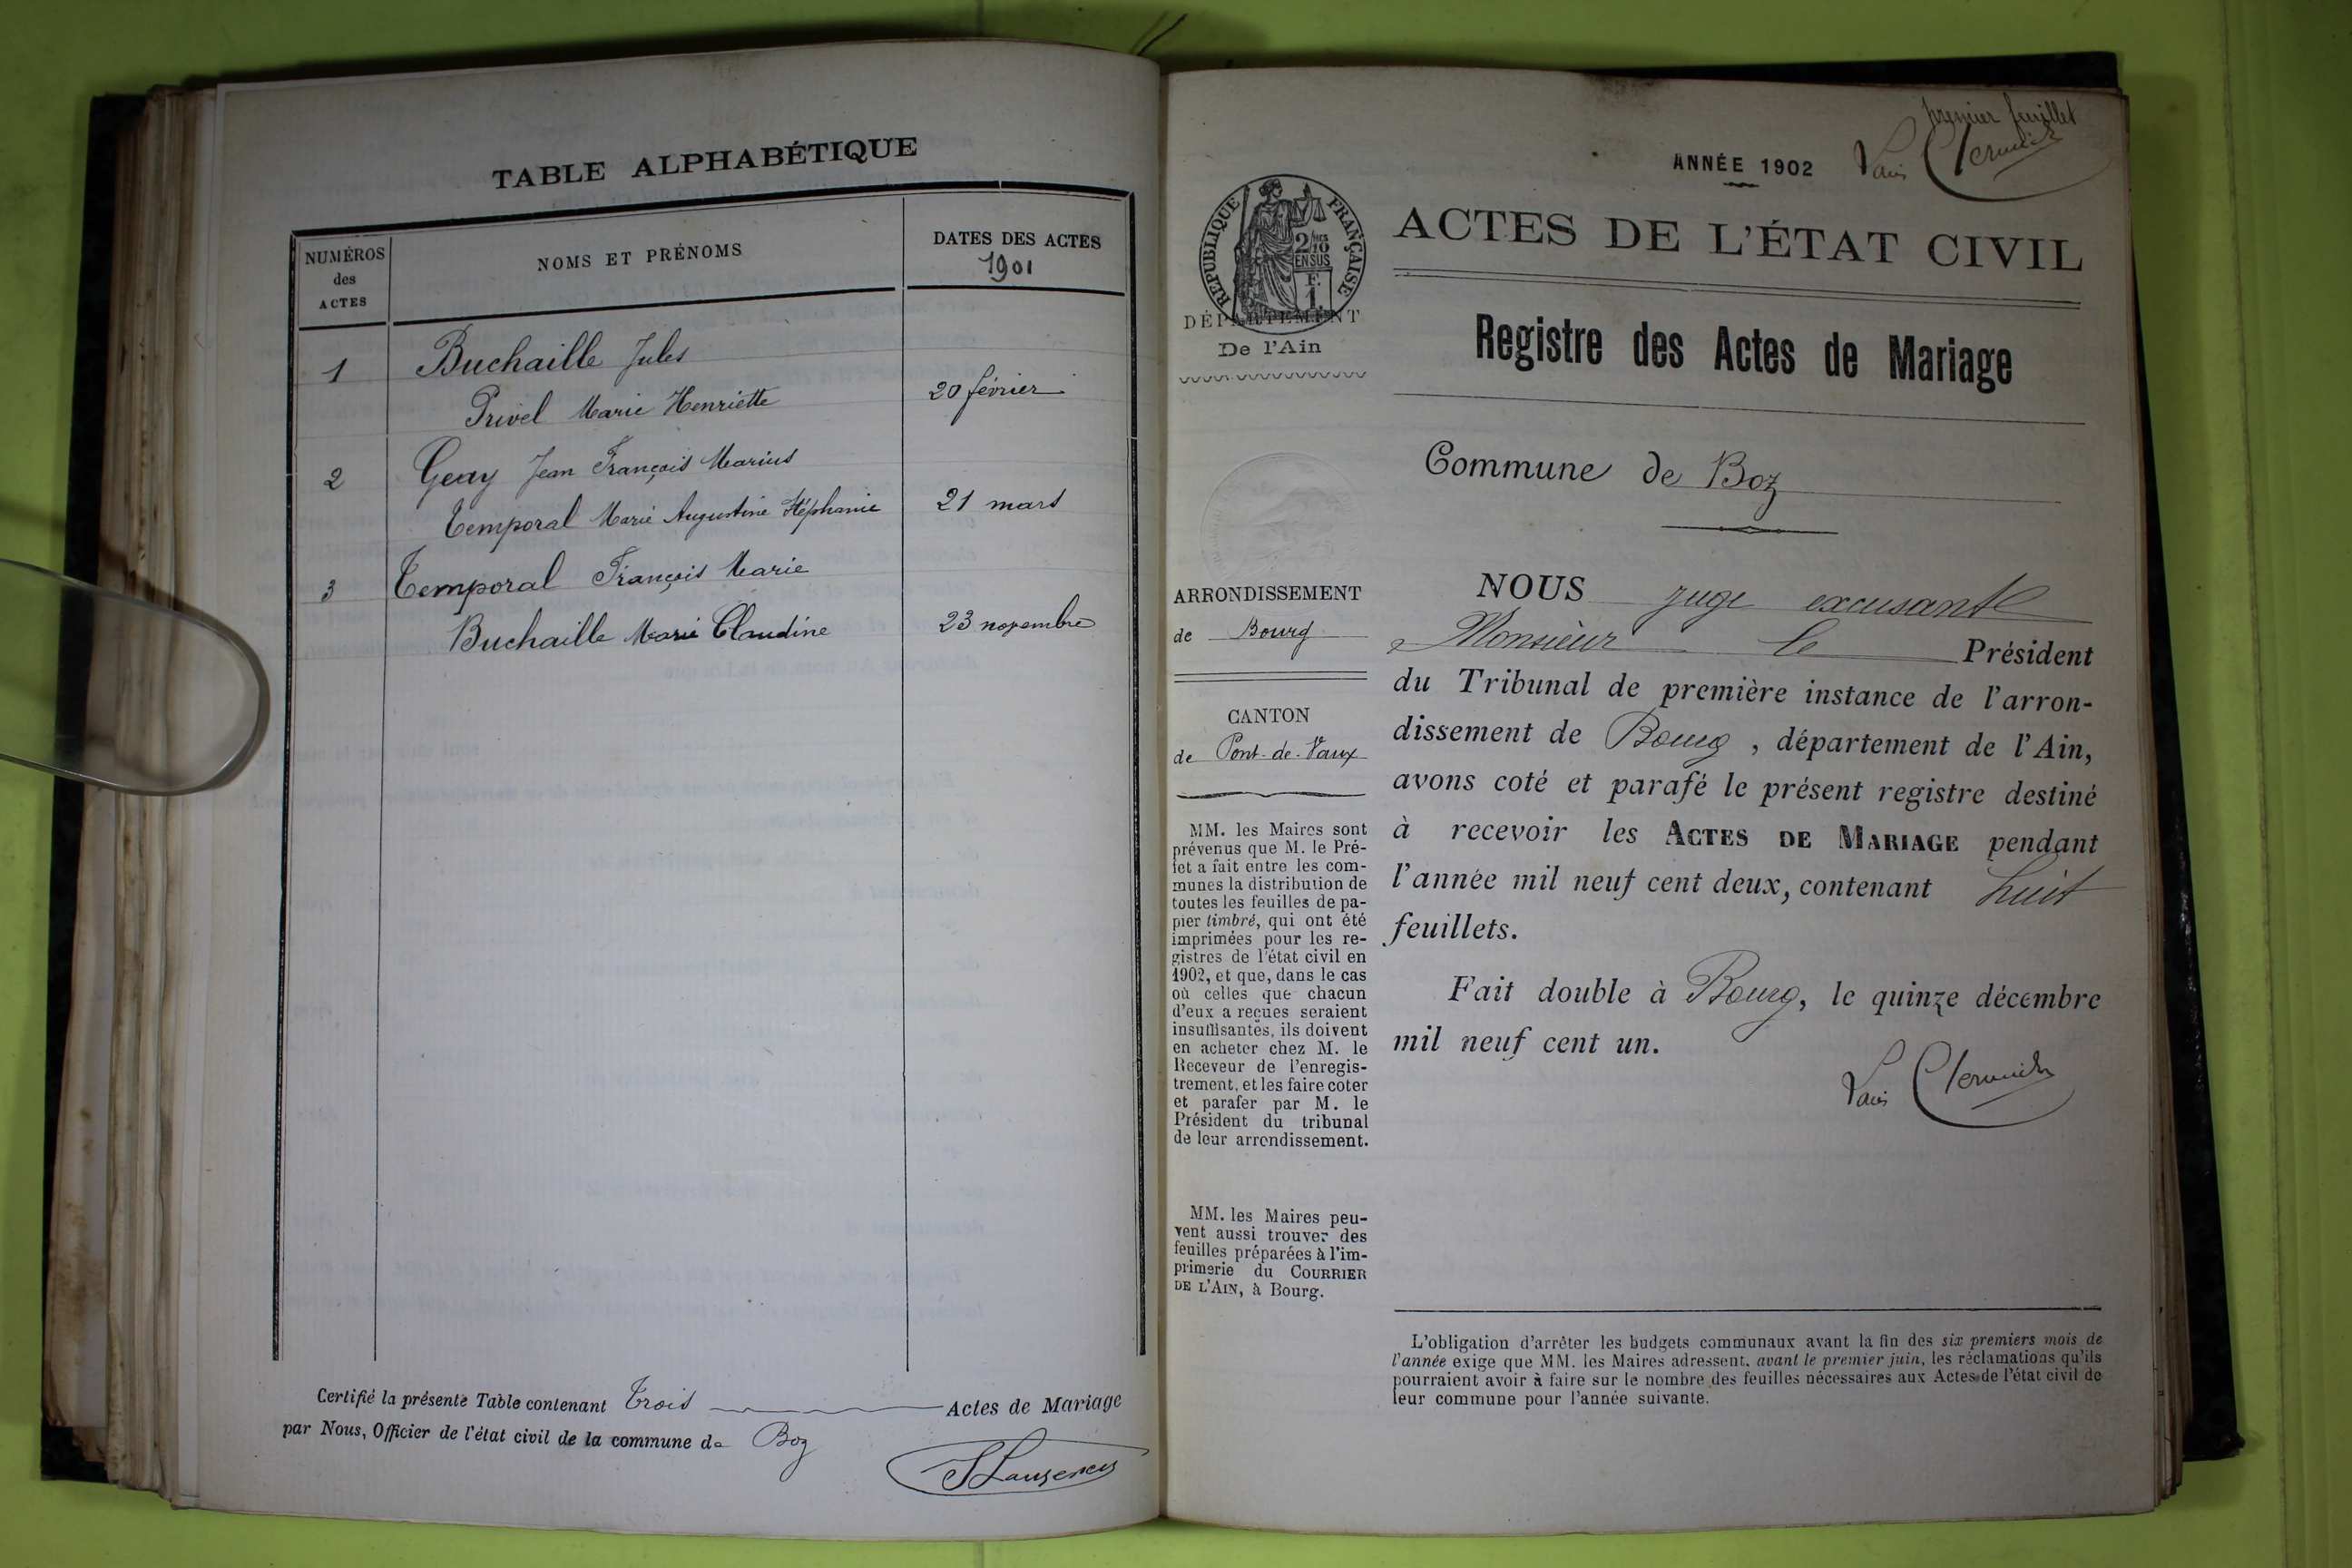 TABLE ALPHABÉTIQUE
NUMÉROS
des
ACTES
NOMS ET PRÉNOMS
DATES DES ACTES
1901
1
Buchaille Jules
Privel Marie Henriette
20 février
2
Geay Jean François Marius
Temporal Marie Augustine Stéphanie
21 mars
3
Temporal François Marie
Buchaille Marie Claudine
23 novembre
Certifié la présente Table contenant Trois Actes de Mariage
par Nous, Officier de l'état civil de la commune de Boz
premier feuillet
ANNÉE 1902
RÉPUBLIQUE FRANÇAISE
2/10
EN SUS
F.
1
ACTES DE L'ÉTAT CIVIL
DÉPARTEMENT
De l'Ain
Registre des Actes de Mariage
Commune de Boz
ARRONDISSEMENT
de Bourg
CANTON
de Pont-de-Vaux
MM. les Maires sont
prévenus que M. le Pré-
fet a fait entre les com-
munes la distribution de
toutes les feuilles de pa-
pier timbré, qui ont été
imprimées pour les re-
gistres de l'état civil en
1902, et que, dans le cas
où celles que chacun
d'eux a reçues seraient
insuffisantes, ils doivent
en acheter chez M. le
Receveur de l'enregis-
trement, et les faire coter
et parafer par M. le
Président du tribunal
de leur arrondissement.
MM. les Maires peu-
vent aussi trouver des
feuilles préparées à l'im-
primerie du COURRIER
DE L'AIN, à Bourg.
NOUS juge excusant
Monsieur le Président
du Tribunal de première instance de l'arron-
dissement de Bourg, département de l'Ain,
avons coté et parafé le présent registre destiné
à recevoir les ACTES DE MARIAGE pendant
l'année mil neuf cent deux, contenant huit
feuillets.
Fait double à Bourg, le quinze décembre
mil neuf cent un.
L'obligation d'arrêter les budgets communaux avant la fin des six premiers mois de
l'année exige que MM. les Maires adressent, avant le premier juin, les réclamations qu'ils
pourraient avoir à faire sur le nombre des feuilles nécessaires aux Actes de l'état civil de
leur commune pour l'année suivante.